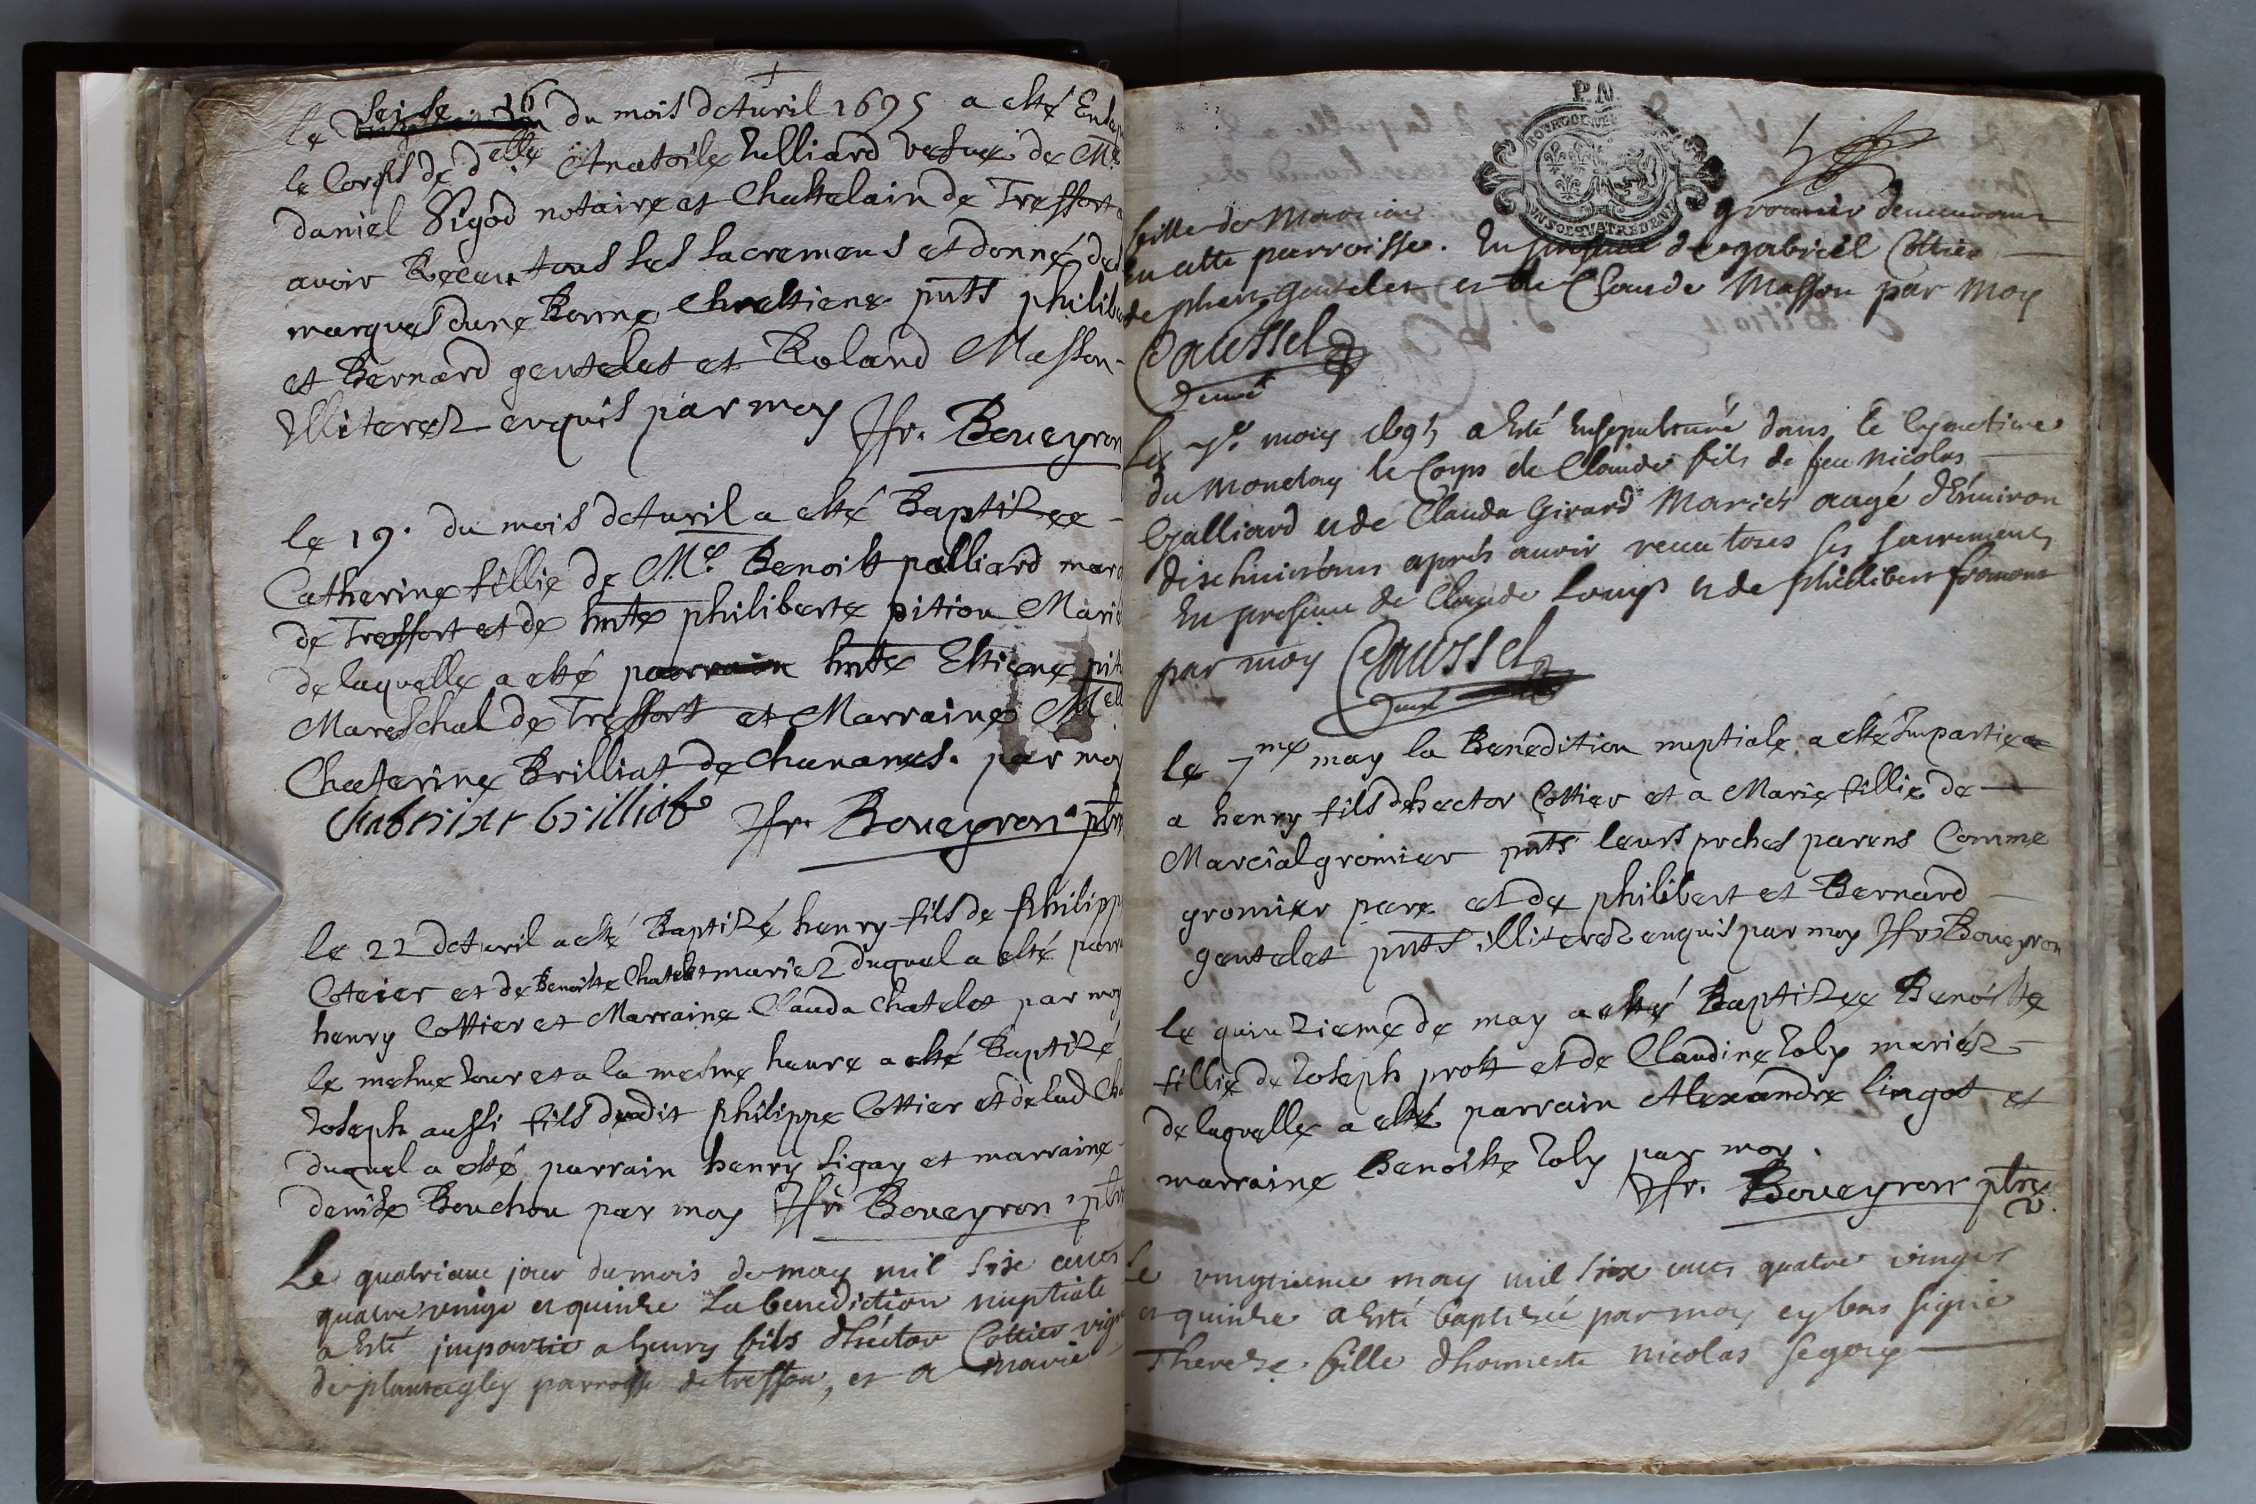 le seise 16 du mois d'Avril 1695 a esté Ense
le Corps de d.elle Anatoile Julliard vesve de Me
daniel Pigod notaire et Chastelain de Treffort
avoir Receu tous les sacremens et donné des
marques dune Bonne Chrestiene pnts philib
et Bernard gentelet et Roland Masson
Illiterez enquis par moy Jfr. Boueyron
le 19. du mois d'Avril a esté Baptizee
Catherine fillie de Me. Benoist palliard marc
de Treffort et de hnte philiberte pition Marie
de laquelle a esté parrain hnte Estiene pit
Mareschal de Treffort et Marraine Melle
Chaterine Brilliat de Chananes. par moy
Chaterine brilliat Jfr. Boueyron ptre
le 22 d'Avril a esté Baptizé henry fils de Philipp
Coteier et de Benoiste Chatelet mariez duquel a esté parr
henry Cottier et Marraine Clauda Chatelet par moy
le mesme Jour et a la mesme heure a esté Baptizé
Joseph aussi fils dudit Philippe Cottier et de lad Cha
duquel a esté parrain henry sigay et marraine
denise Bouchou par moy Jfr Boueyron ptre
Le quatrieme jour du mois de may mil six cents
quatre vingt et quinze La benediction nuptiale
a Esté impartie a henry fils d'hector Cottier vign
de plantagley parroisse de treffort, et a marie
P.N.
fille de Marcial gromier demeurant
en cette parroisse. En presence de gabriel Cottier
de phert gentelet et de Claude Masson par moy
Caussel
Le 7e may 1695 a Esté Ensepulturé dans le Cymetiere
du Monetay le Corps de Claude fils de feu nicolas
Galliard et de Clauda Girard Mariés aagé d'Environ
dixhuit ans aprés avoir receu tous ses sacremens
En presence de Claude Loup et de philibert fromont
par moy Caussel
le 7me may la Benedition nuptiale a esté Impartie
a henry fils d'hector Cottier et a Marie fillie de
Marcial gromier pnts leurs proches parens Comme
gromier pere et de philibert et Bernard
gentelet pnts illiterez enquis par moy Jfr Boueyron
le quinzieme de may a esté Baptizee Benoiste
fillie de Joseph prost et de Claudine Joly mariéz
de laquelle a esté parrain Alexandre lingot et
marraine Benoiste Joly par moy.
Jfr. Boueyron ptre
Le vingtieme may mil six cents quatre vingts
et quinze a Esté baptizée par moy cy bas signé
Thereze fille d'honneste nicolas segoy